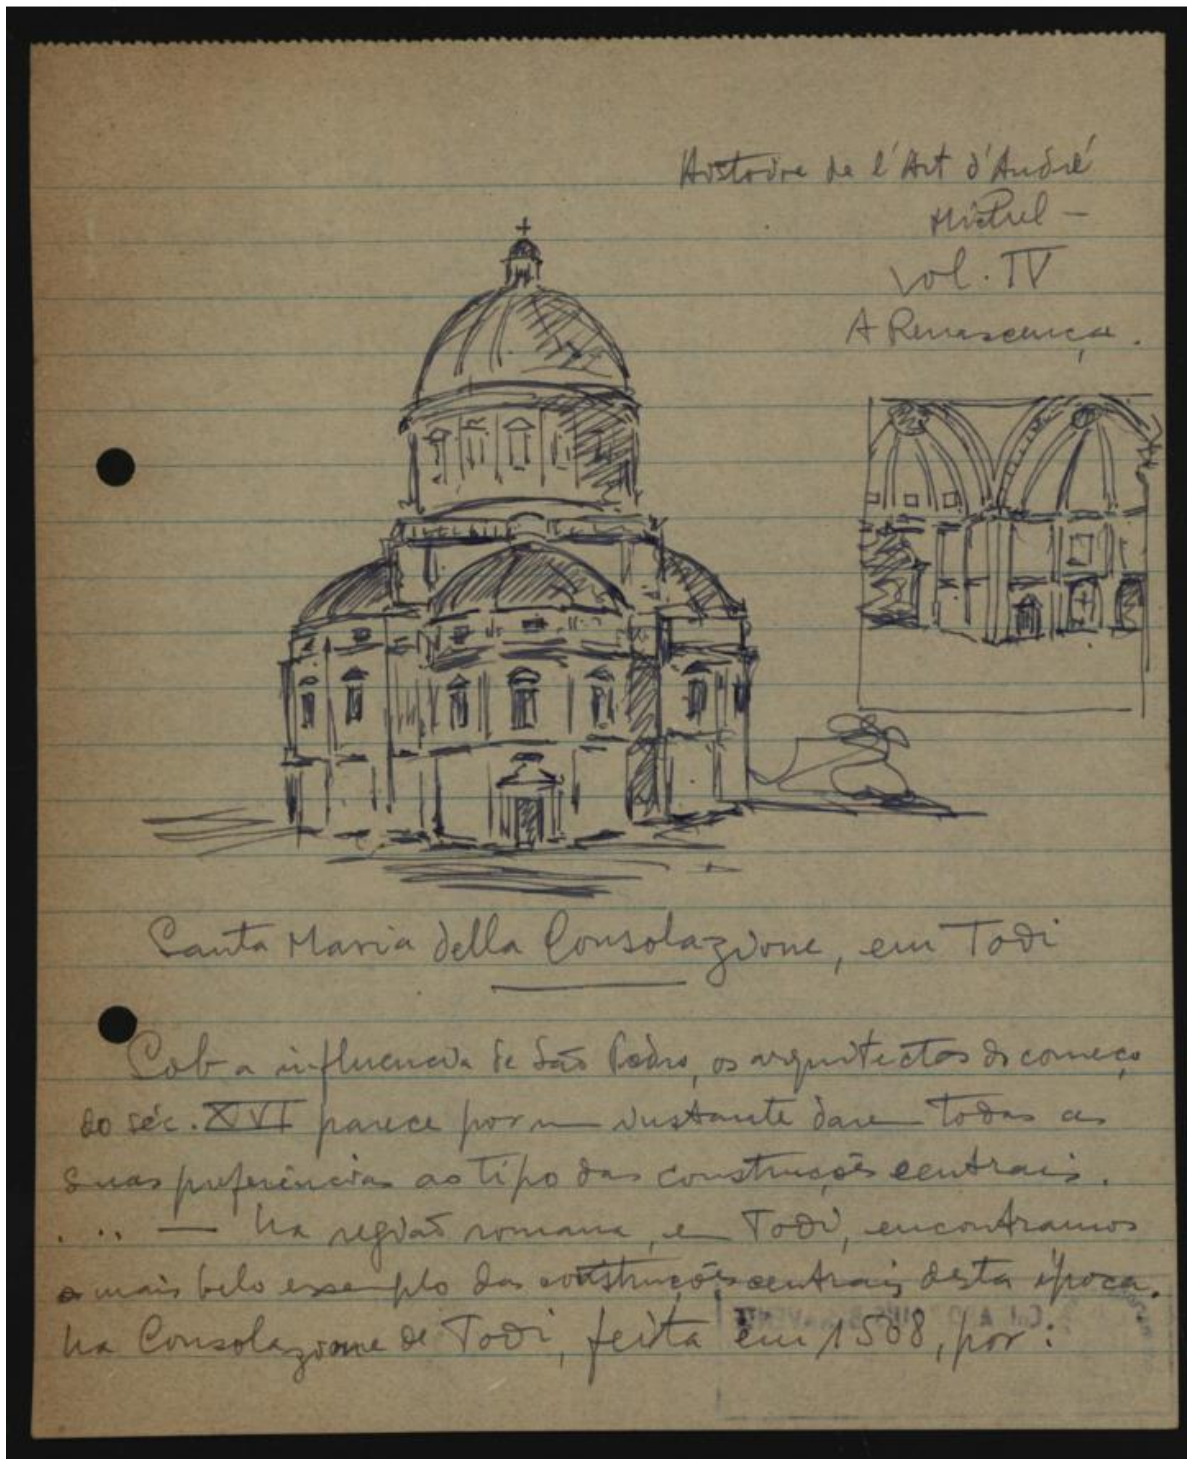 Histoire de l'Art d'André
Michel -
vol. IV
A Renascença.
Santa Maria della Consolazione, em Todi
Sob a influencia de São Pedro, os arquitectos do começo
do séc. XVI parece por um instante darem todas as
suas preferências ao tipo das construções centrais.
... — Na região romana, em Todi, encontramos
o mais belo exemplo das construções centrais desta época.
Na Consolazione de Todi, feita em 1508, por: